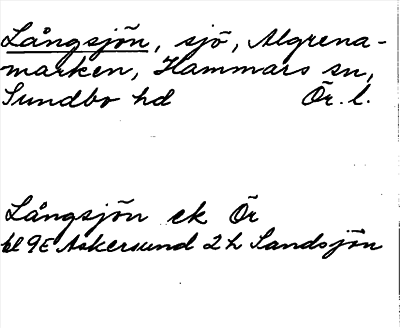 Långsjön, sjö, Algrena-
marken, Hammars sn,
Sundbo hd Ör. l.
Långsjön ek Ör
bl 9E Askersund 2 h Sandsjön